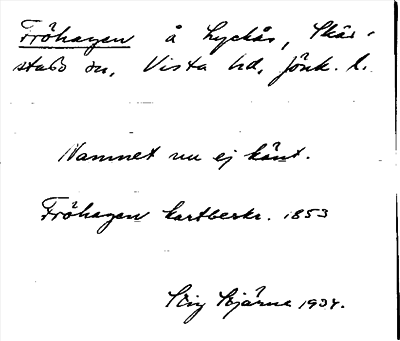 Fröhagen å Lyckås, Skär-
stads sn, Vista hd, Jönk. l.
Namnet nu ej känt.
Fröhagen kartbeskr. 1853
Stig Stjärne 1934.